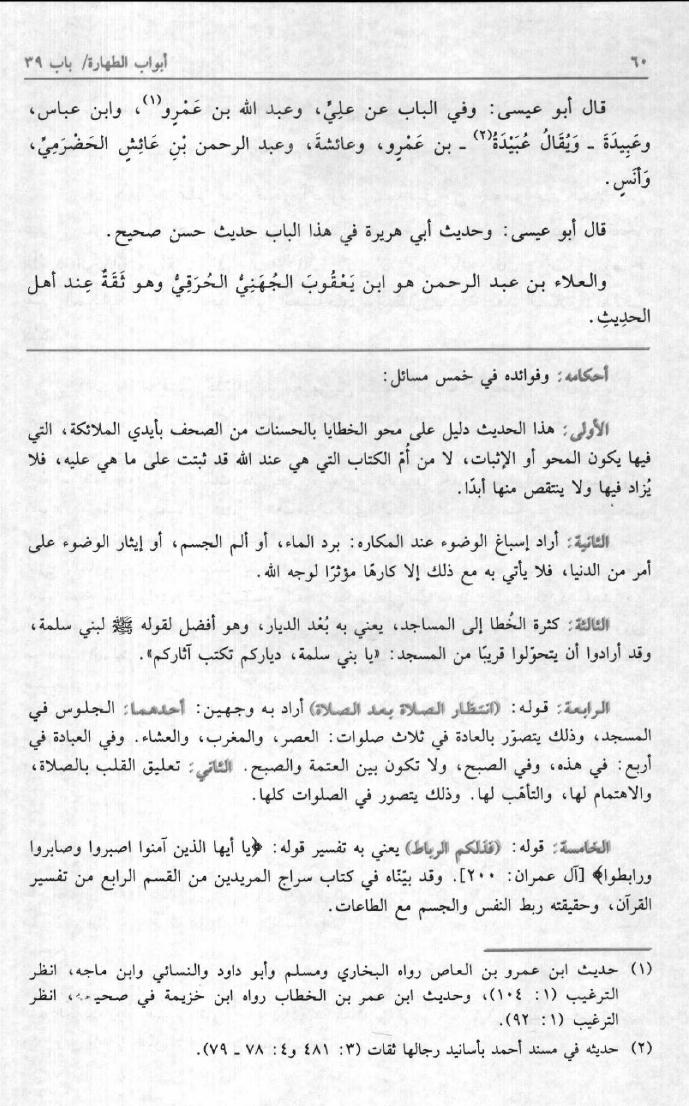 ٦٠ أبواب الطهارة/ باب ٣٩
قال أبو عيسى: وفي الباب عن علِيٍّ، وعبد الله بن عَمْرٍو(١)، وابن عباس،
وعَبِيدَةَ ـ وَيُقَالُ عُبَيْدَةُ(٢) ـ بن عَمْرٍو، وعائشةَ، وعبد الرحمن بْنِ عَائِشٍ الحَضْرَمِيِّ،
وَأنَسٍ.
قال أبو عيسى: وحديث أبي هريرة في هذا الباب حديث حسن صحيح.
والعلاء بن عبد الرحمن هو ابن يَعْقُوبَ الجُهَنِيُّ الحُرَقِيُّ وهو ثَقَةٌ عِند أهل
الحدِيثِ.
أحكامه: وفوائده في خمس مسائل:
الأولى: هذا الحديث دليل على محو الخطايا بالحسنات من الصحف بأيدي الملائكة، التي
فيها يكون المحو أو الإثبات، لا من أُمّ الكتاب التي هي عند الله قد ثبتت على ما هي عليه، فلا
يُزاد فيها ولا ينتقص منها أبدًا.
الثانية: أراد إسباغ الوضوء عند المكاره: برد الماء، أو ألم الجسم، أو إيثار الوضوء على
أمر من الدنيا، فلا يأتي به مع ذلك إلا كارهًا مؤثرًا لوجه الله.
الثالثة: كثرة الخُطا إلى المساجد، يعني به بُعْد الديار، وهو أفضل لقوله ﷺ لبني سلمة،
وقد أرادوا أن يتحوّلوا قريبًا من المسجد: «يا بني سلمة، دياركم تكتب آثاركم».
الرابعة: قوله: (انتظار الصلاة بعد الصلاة) أراد به وجهين: أحدهما: الجلوس في
المسجد، وذلك يتصوّر بالعادة في ثلاث صلوات: العصر، والمغرب، والعشاء. وفي العبادة في
أربع: في هذه، وفي الصبح، ولا تكون بين العتمة والصبح. الثاني: تعليق القلب بالصلاة،
والاهتمام لها، والتأهّب لها. وذلك يتصور في الصلوات كلها.
الخامسة: قوله: (فذلكم الرباط) يعني به تفسير قوله: ﴿يا أيها الذين آمنوا اصبروا وصابروا
ورابطوا﴾ [آل عمران: ٢٠٠]. وقد بيّنّاه في كتاب سراج المريدين من القسم الرابع من تفسير
القرآن، وحقيقته ربط النفس والجسم مع الطاعات.
(١) حديث ابن عمرو بن العاص رواه البخاري ومسلم وأبو داود والنسائي وابن ماجه، انظر
الترغيب (١: ١٠٤)، وحديث ابن عمر بن الخطاب رواه ابن خزيمة في صحيحه، انظر
الترغيب (١: ٩٢).
(٢) حديثه في مسند أحمد بأسانيد رجالها ثقات (٣: ٤٨١ و٤: ٧٨ ـ ٧٩).